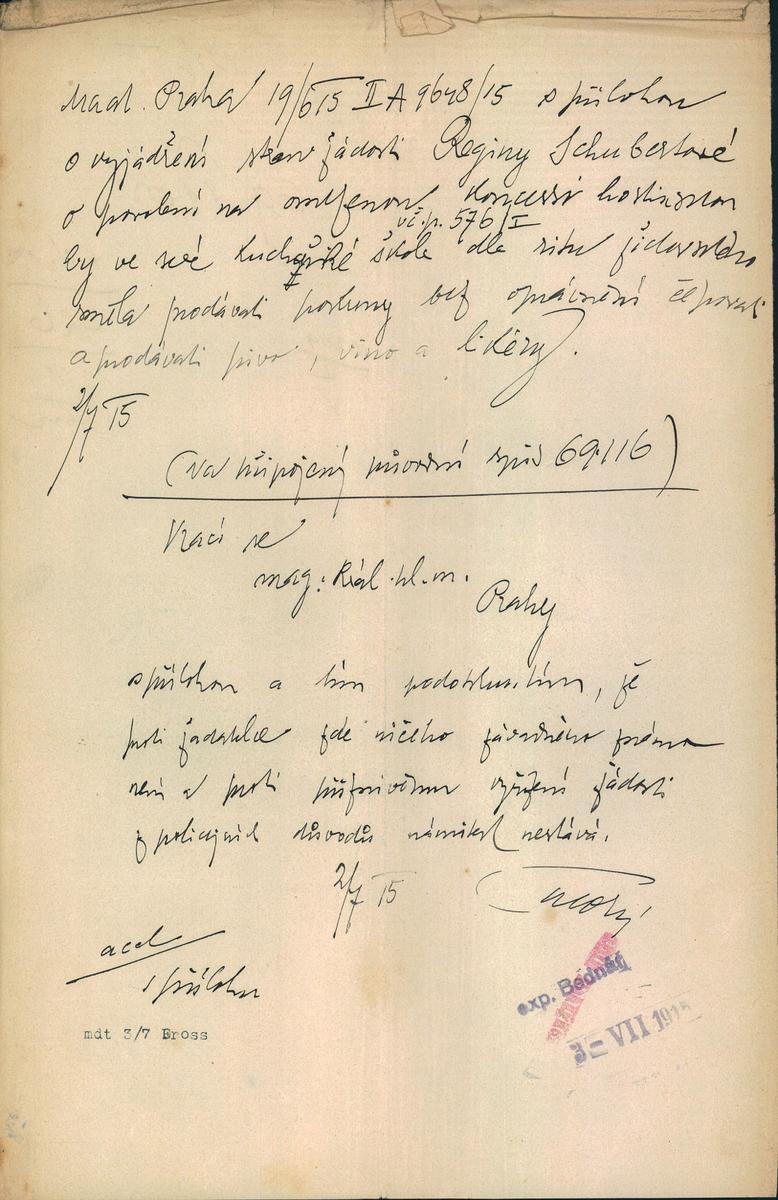 Mag. Praha 19/6 15 II A 9648/15 s přílohou
o vyjádření stran žádosti Reginy Schubertové
o povolení na omezenou koncessi hostinskou
v č.p. 576/I
by ve své kuchařské škole dle ritu židovského
směla prodávati pokrmy bez oprávnění čepovati
a prodávati pivo, víno a likéry.
2/7 15
(Na připojený původní spis 69116)
Vrací se
mag. král. hl. m.
Prahy
s přílohou a tím podotknutím, že
proti žadatelce zde ničeho závadného známo
není a proti příznivému vyřízení žádosti
z policejních důvodů námitek nestává.
2/7 15
acel
1 přílohu
mdt 3/7 Bross
exp. Bednář
3 - VII 1915